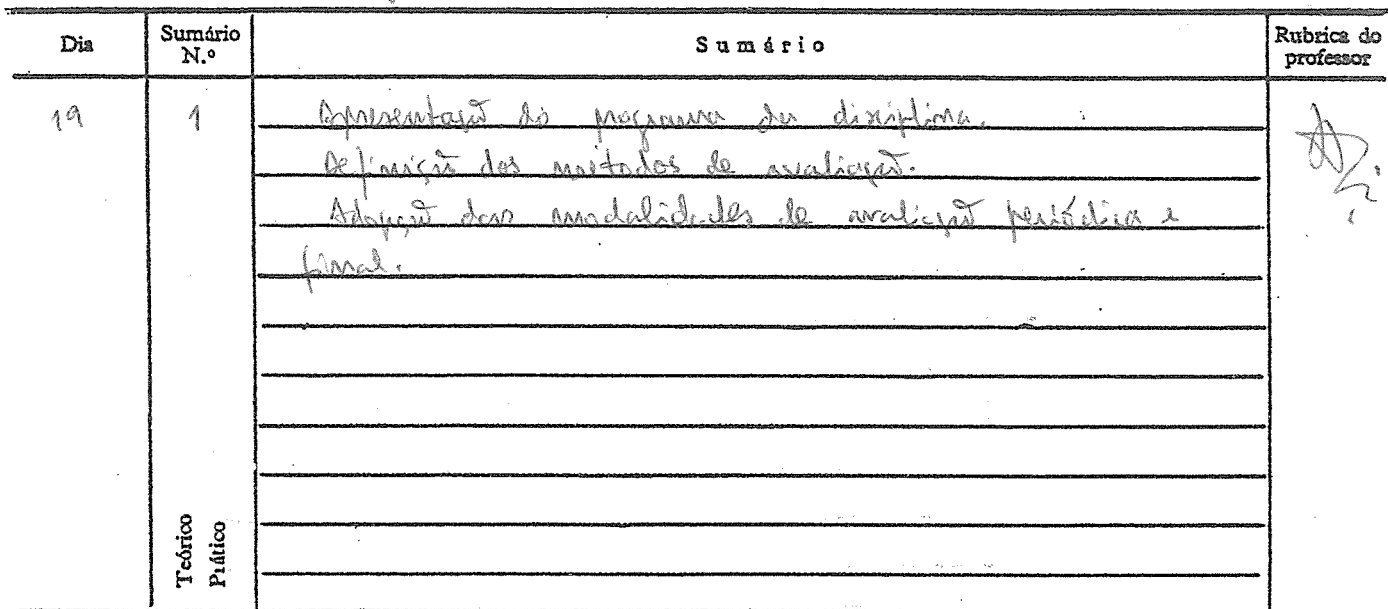 Dia Sumário N.º Sumário Rubrica do professor
19 1 Apresentação do programa da disciplina.
Definição dos métodos de avaliação.
Adopção das modalidades de avaliação periódica e
final.
Teórico
Prático